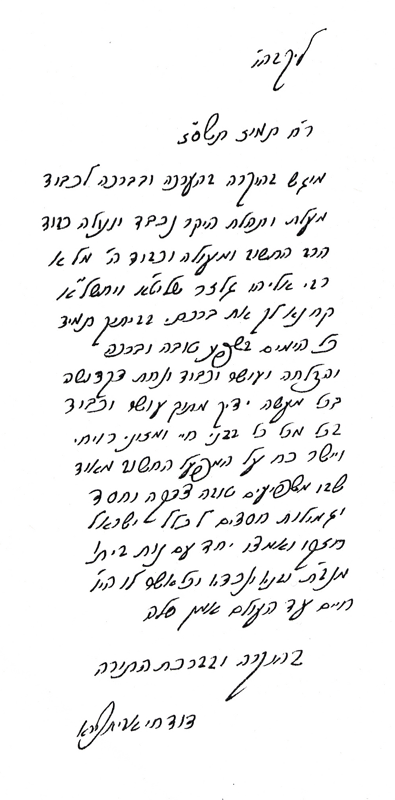 ליקבה"ו
ר"ח תמיז תשס"ז
מוגש בהוקרה בהערכה ובברכה לכבוד
מעלת ותהלת היקר נכבד ונעלה כבוד
הרב החשוב ומעולה וכבוד ה' מלא
רבי אליהו גלזר שליט"א ויחשל"א
קח נא לך את ברכתי בביתך תמיד
כל הימים בשפע טובה וברכה
והצלחה ועושר וכבוד ונחת דקדושה
בכל מעשה ידיך מתוך עושר וכבוד
בכל מכל כל בבני חיי ומזוני רויחי
ויישר כח על המפעל החשוב מאוד
שבו משפיעים טובה צדקה וחסד
וגמילות חסדים לכלל ישראל
חזקו ואמצו יחד עם נות ביתו
מנב"ת ונכדא וכל אשר לו היו
חיים עד העולם אמן סלה
בהוקרה ובברכת התורה
דוד חי אביחצירא